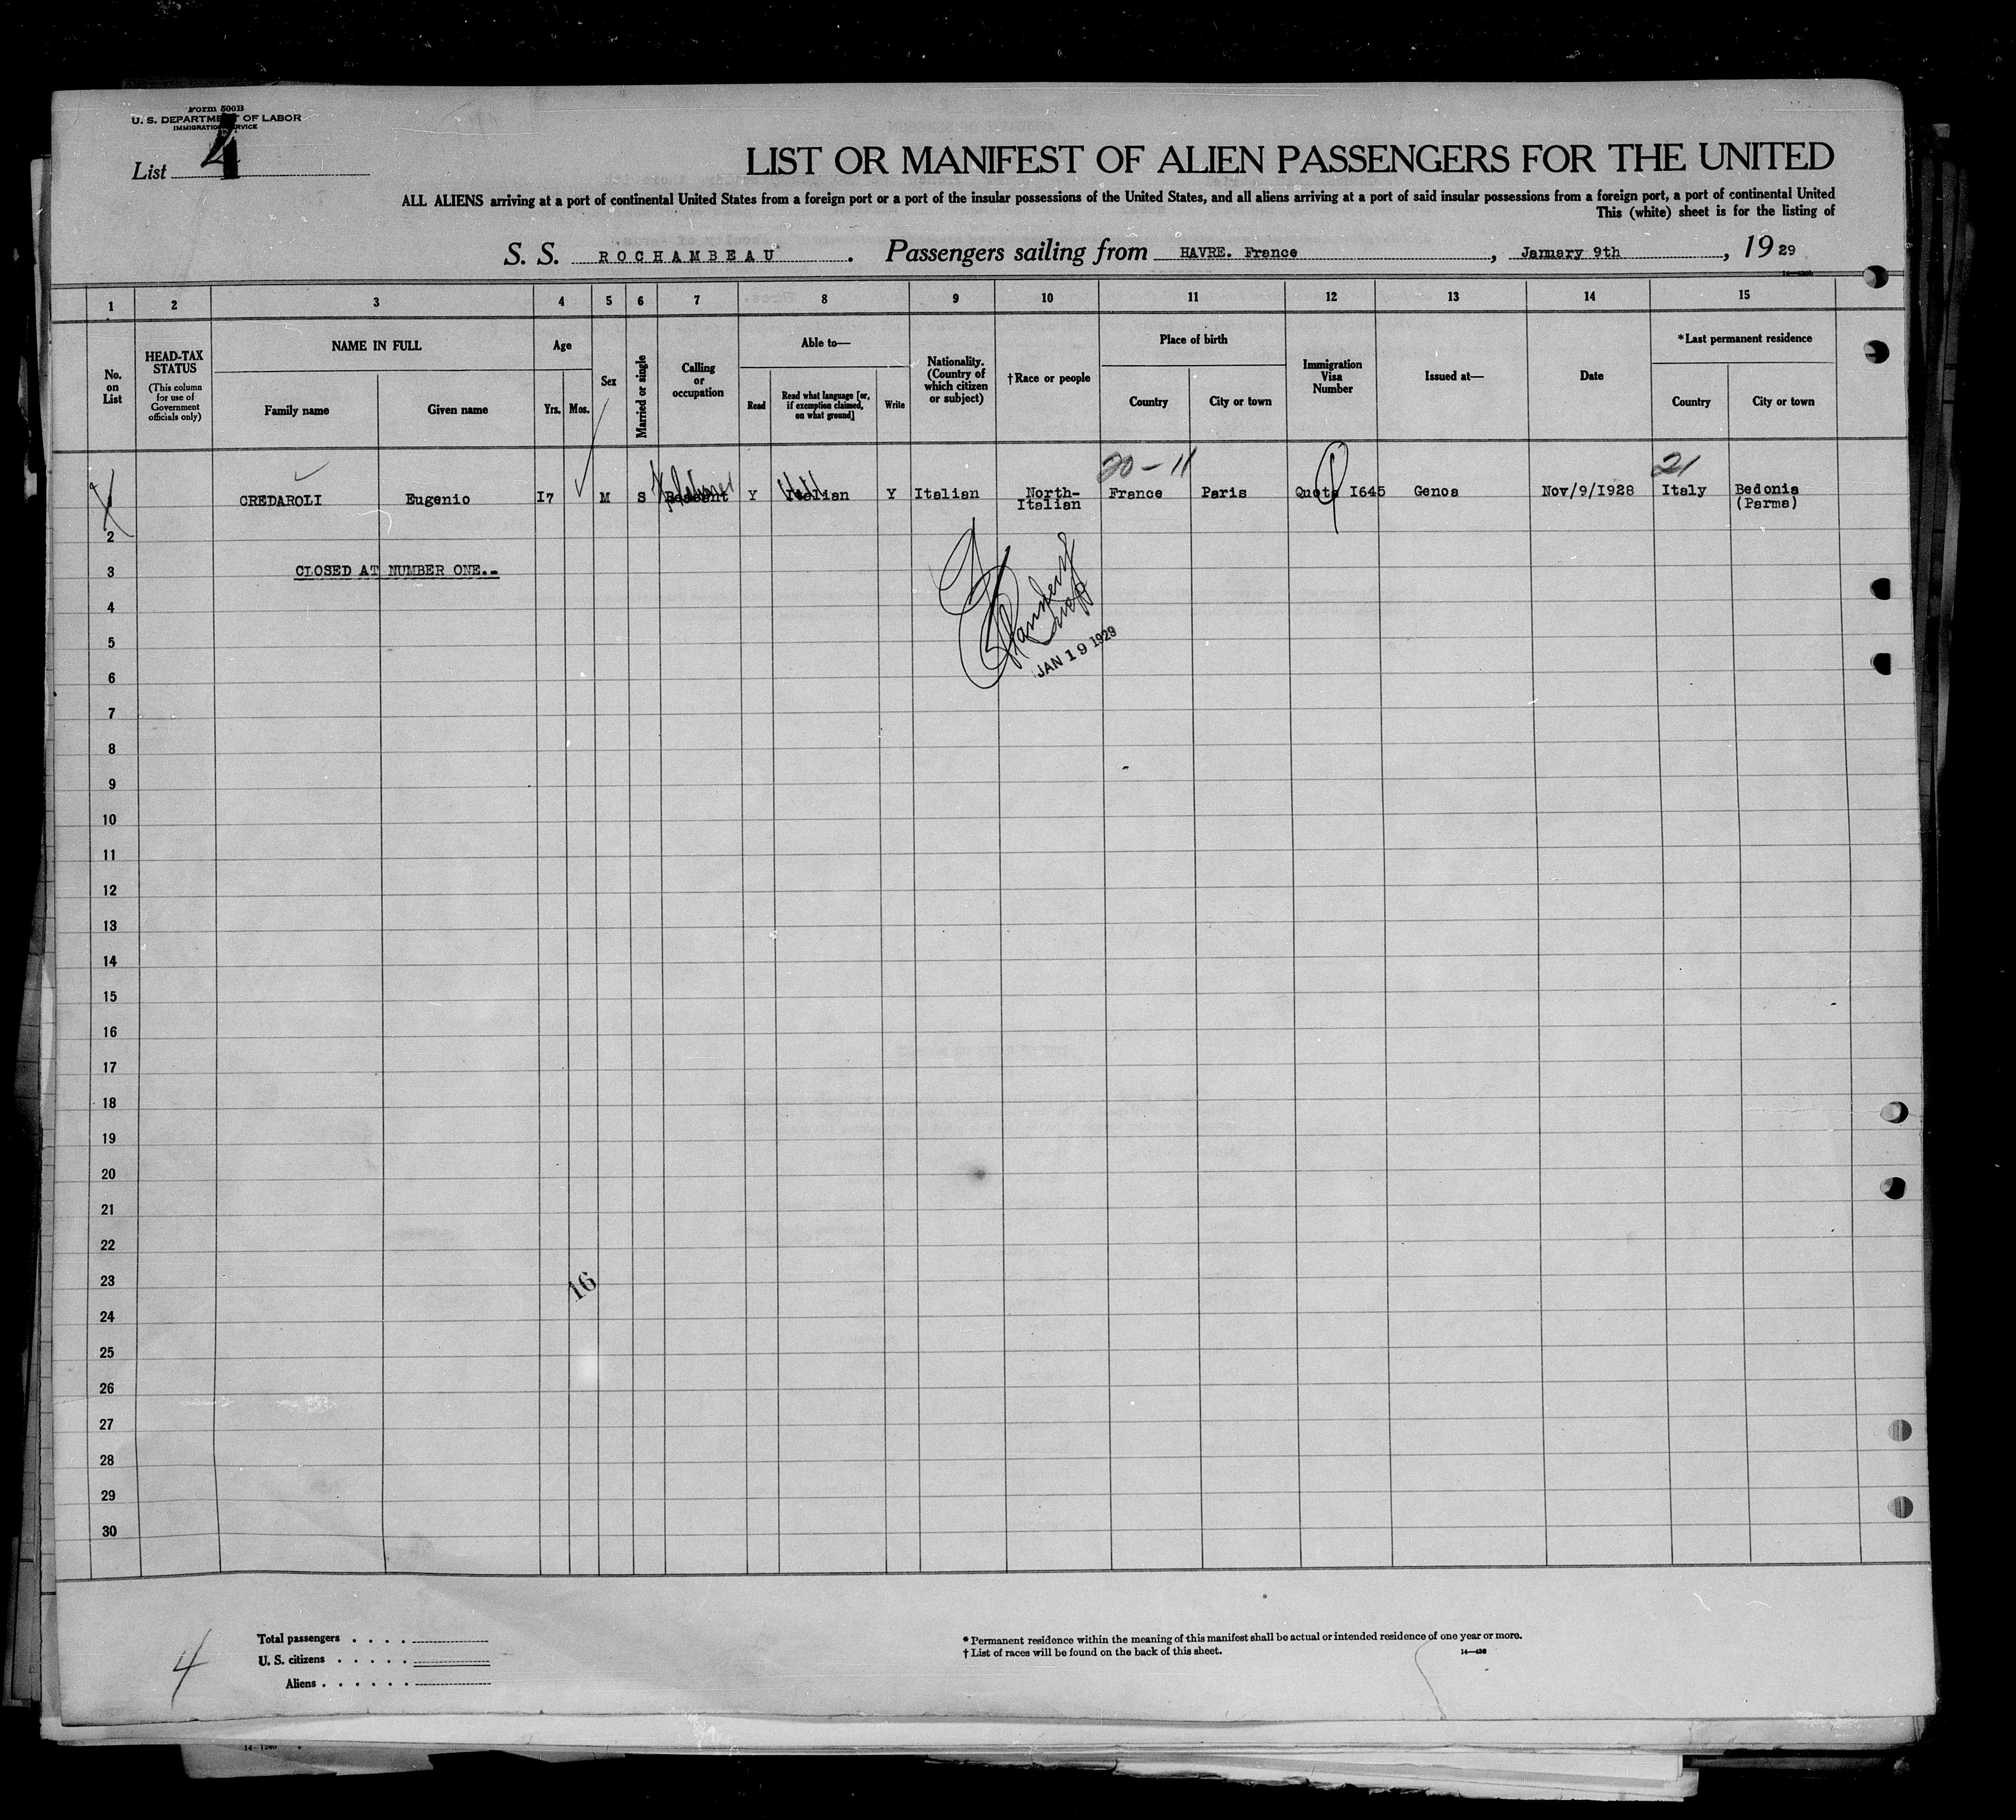 Form 500B
U. S. DEPARTMENT OF LABOR
IMMIGRATION SERVICE
List 4
LIST OR MANIFEST OF ALIEN PASSENGERS FOR THE UNITED
ALL ALIENS arriving at a port of continental United States from a foreign port or a port of the insular possessions of the United States, and all aliens arriving at a port of said insular possessions from a foreign port, a port of continental United
This (white) sheet is for the listing of
S. S. ROCHAMBEAU. Passengers sailing from HAVRE. France, January 9th, 1929
1 2 3 4 5 6 7 8 9 10 11 12 13 14 15
No. on List
HEAD-TAX STATUS (This column for use of Government officials only)
NAME IN FULL
Family name Given name
Age
Yrs. Mos.
Sex
Married or single
Calling or occupation
Able to—
Read
Read what language [or, if exemption claimed, on what ground]
Write
Nationality. (Country of which citizen or subject)
†Race or people
Place of birth
Country City or town
Immigration Visa Number
Issued at—
Date
*Last permanent residence
Country City or town
20-11 21
1 CREDAROLI Eugenio I7 M S Laborer Y Italian Y Italian North-Italian France Paris Quota I645 Genoa Nov/9/I928 Italy Bedonia (Parma)
2
3 CLOSED AT NUMBER ONE.-
4
5
JAN 19 1929
6
7
8
9
10
11
12
13
14
15
16
17
18
19
20
21
22
23
16
24
25
26
27
28
29
30
4
Total passengers . . . .
U. S. citizens . . . . .
Aliens . . . . . .
* Permanent residence within the meaning of this manifest shall be actual or intended residence of one year or more.
† List of races will be found on the back of this sheet.
14—430
14-1240